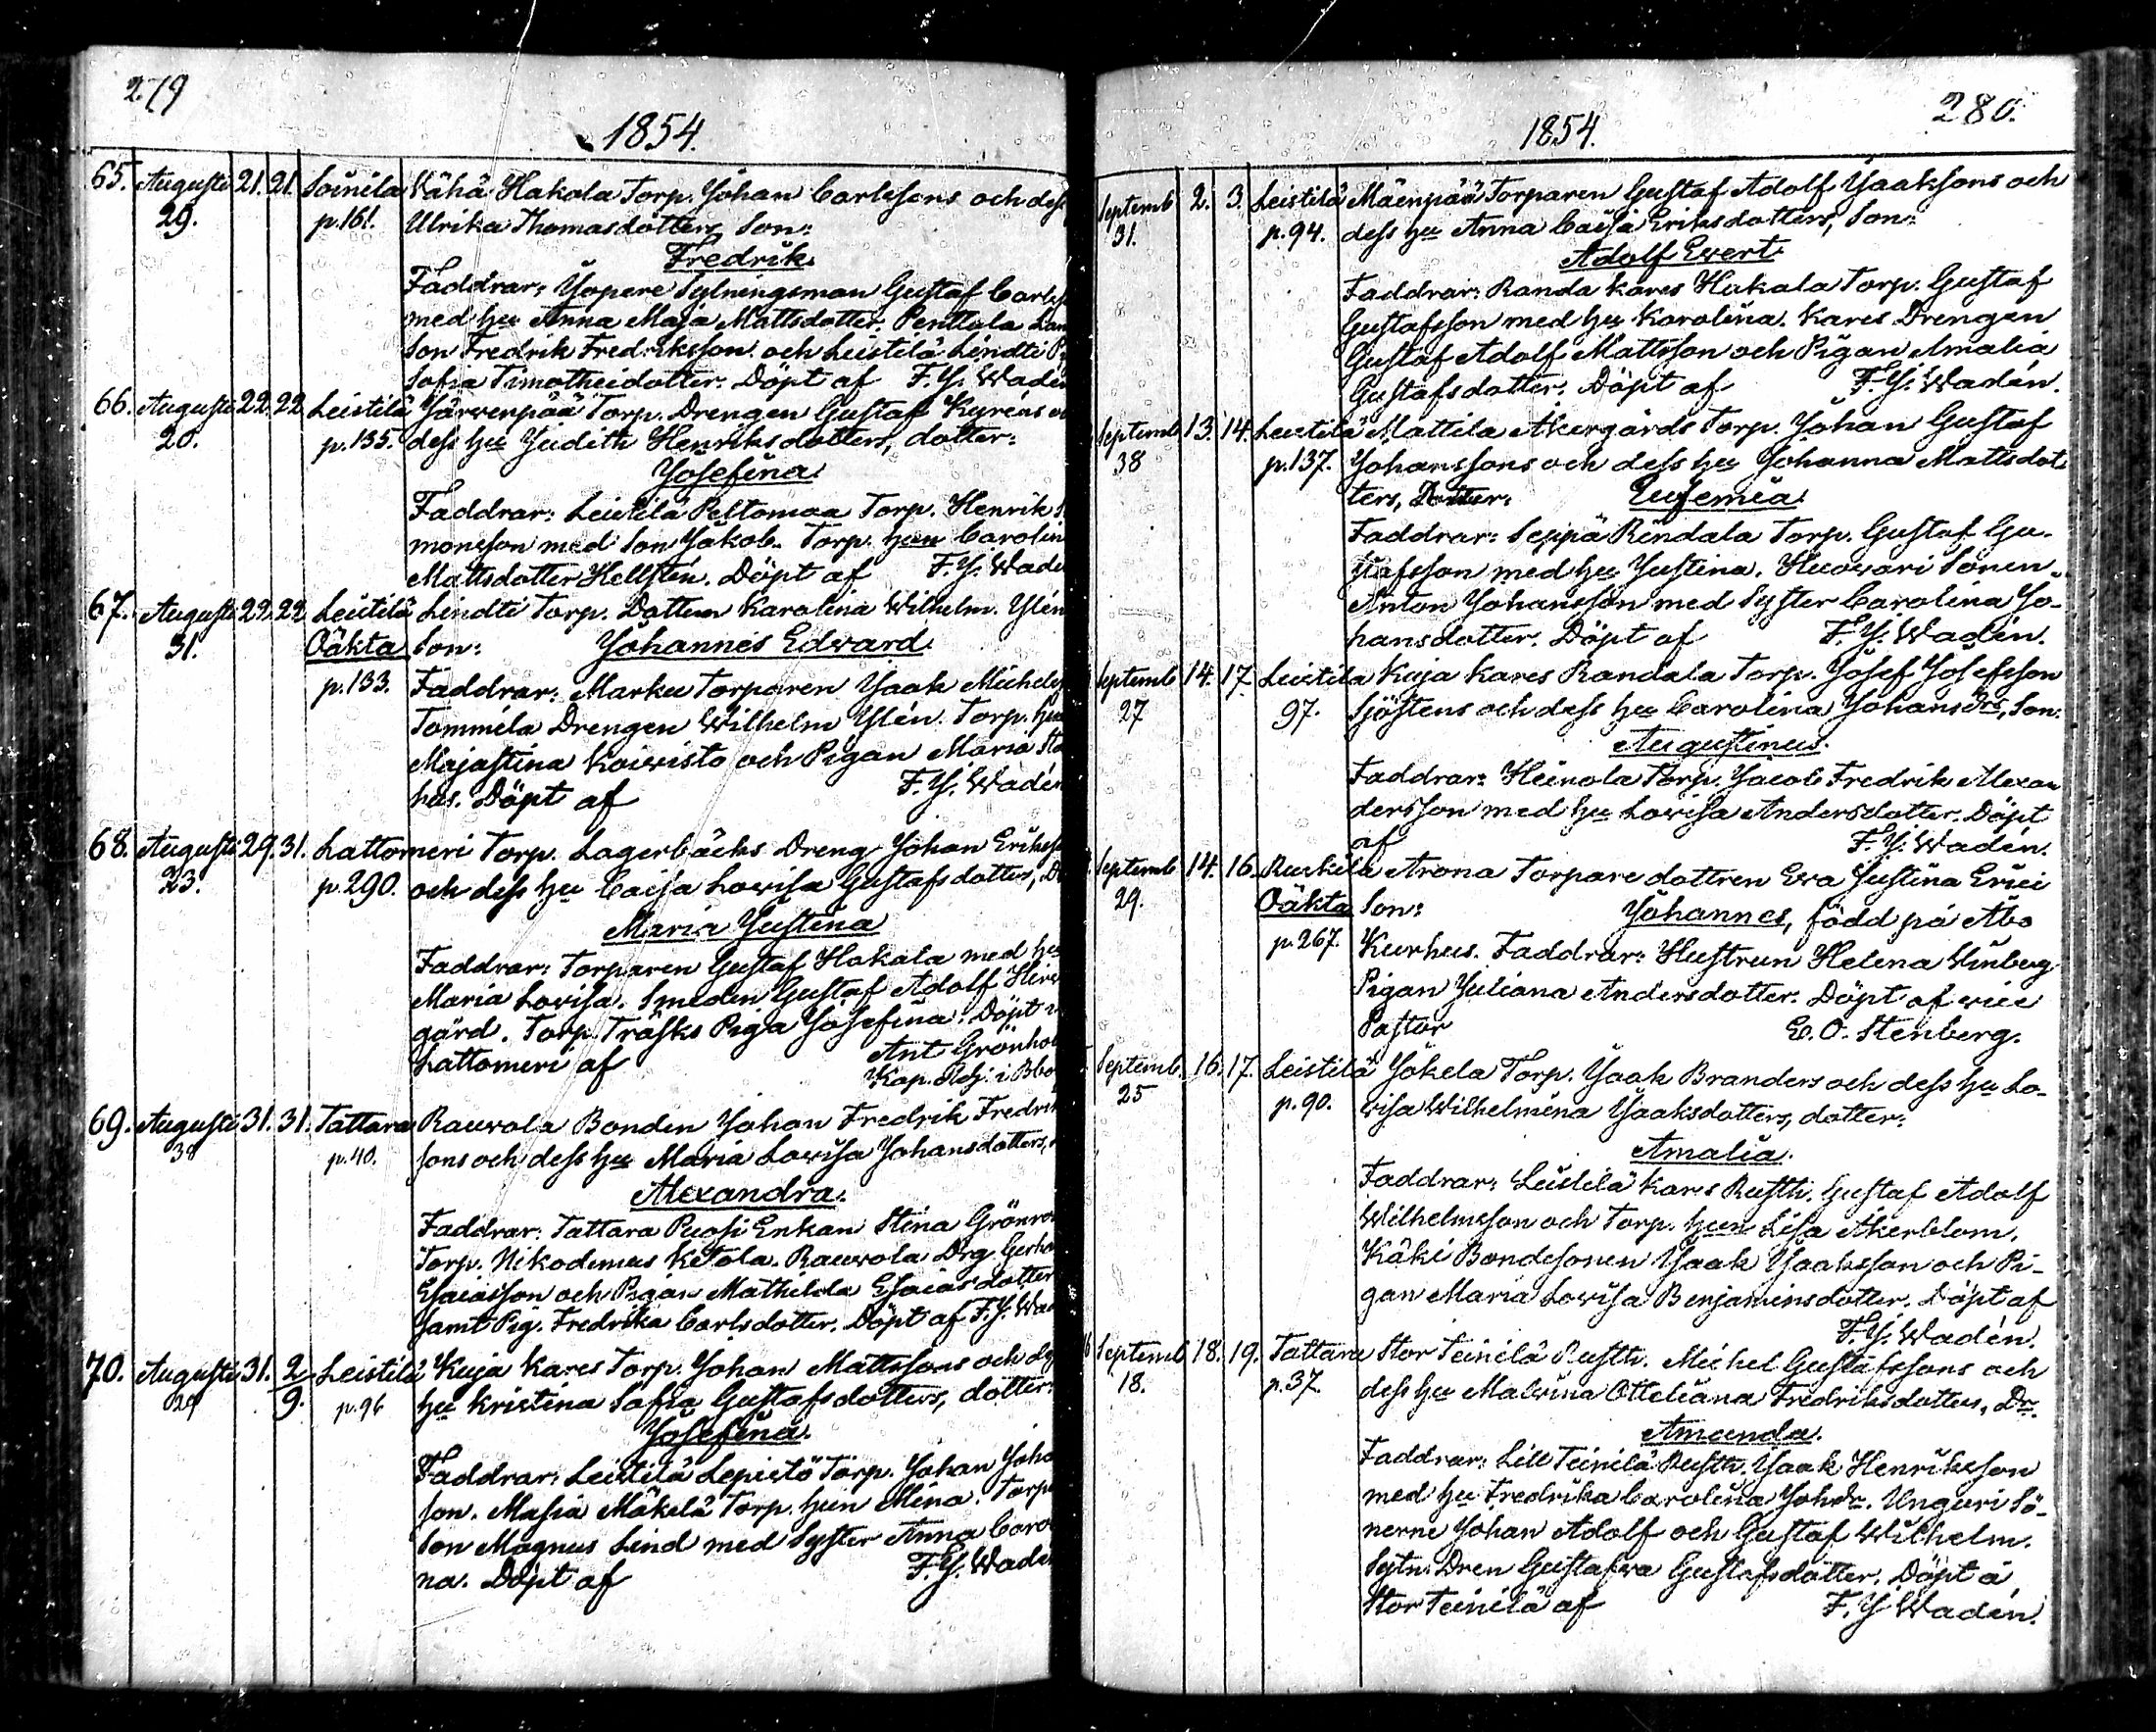 279
1854.
65. Augusti 21. 21. Soinila Vähä Hakala Torp. Johan Carlssons och dess
29. p. 161. Ulrika Thomasdotters Son:
Fredrik.
Faddrar: Sytningsman Gustaf
med hu Anna Maja Mattsdotter. Penttala
Son Fredrik Fredriksson och Leistilä Lindti
Sofia Timotheidotter. Döpt af F. J. Wadén
66. Augusti 22. 22 Leistilä Järvenpää Torp. Drengen Gustaf Kyréns
20. p. 135. dess hu Judith Henriksdotters, dotter:
Josefina.
Faddrar: Leistilä Peltomaa Torp. Henrik
monsson med Son Jakob. Torp. hun Carolin
Mattsdotter Hellstén. Döpt af F. J. Wadé
67. Augusti 22. 22 Leistilä Lindti Torp. Dottren Karolina Wilhelm. Ylén
31. Oäkta Son: Johannes Edvard.
p. 133. Faddrar: Marku Torparen Isaak
Tommila Drengen Wilhelm Ylén. Torp. hun
Majastina Koivisto och Pigan Maria
hus. Döpt af F. J. Wadén
68. Augusti 29. 31. Lattomeri Torp. Lagerbäcks Dreng Johan Eriksso
23. p. 290. och dess hu Caisa Lovisa Gustafsdotters,
Maria Justina
Faddrar: Torparen Gustaf Hakala med hu
Maria Lovisa. Smeden Gustaf Adolf
gård. Torp. Träsks Piga Josefina. Döpt
Lattomeri af Ant Grönho
Kap. Adj. i
69. Augusti 31. 31. Tattara Rauvola Bonden Johan Fredrik Fredrik
38 p. 40. sons och dess hu Maria Lovisa Johansdotters,
Alexandra.
Faddrar: Tattara Puosi Enkan Stina
Torp. Nikodemus Ketola. Rauvola Drg.
Esaiasson och Pigan Mathilda Esaiasdotter
samt Pig. Fredrika Carlsdotter. Döpt af F. J. Wad
70. Augusti 31. 2 Leistilä Kuja Kares Torp. Johan Mattssons och
29 9. p. 96 hu Kristina Sofia Gustafsdotters, dotter:
Josefina.
Faddrar: Leistilä Lepistö Torp. Johan Joha
son. Masia Mäkelä Torp. hun Mina. Torp
Son Magnus Lind med Syster Anna Caro
na. Döpt af F. J. Wadé
280.
1854.
Septemb 2. 3. Leistilä Mäenpää Torparen Gustaf Adolf Isaakssons och
31. p. 94. dess hu Anna Caisa Eriksdotters, Son:
Adolf Evert.
Faddrar: Randa Kares Hakala Torp. Gustaf
Gustafsson med hu Karolina. Kares Drengen
Gustaf Adolf Mattsson och Pigan Amalia
Gustafsdotter. Döpt af F. J. Wadén.
Septemb 13. 14. Leistilä Mattila Åkergårds Torp. Johan Gustaf
38 p. 137. Johanssons och dess hu Johanna Mattsdot
ters, Dotter: Eufemia.
Faddrar: Seppä Rindala Torp. Gustaf Gu-
stafsson med hu Justina. Huovari Sonen
Anton Johansson med Syster Carolina Jo-
hansdotter. Döpt af F. J. Wadén.
Septemb 14. 17. Leistilä Kuja Kares Randala Torp. Josef Josefsson
27 97. Sjöstens och dess hu Carolina Johansdrs, Son:
Augustinus.
Faddrar: Heinola Torp. Jacob Fredrik Alexan
dersson med hu Lovisa Andersdotter. Döpt
af F. J. Wadén.
Septemb 14. 16. Ruskila Arona Torpare dottren Eva Justina Erici
29. Oäkta Son: Johannes, född på Åbo
p. 267. Kurhus. Faddrar: Hustrun Helena
Pigan Juliana Andersdotter. Döpt af vice
Pastor E. O. Stenberg.
Septemb. 16. 17. Leistilä Jokela Torp. Isaak Branders och dess hu Lo-
25 p. 90. visa Wilhelmina Isaaksdotters, dotter:
Amalia.
Faddrar: Leistilä Kares Rusth. Gustaf Adolf
Wilhelmsson och Torp. hun Lisa Åkerblom.
Käki Bondesonen Isaak Isaaksson och Pi-
gan Maria Lovisa Benjaminsdotter. Döpt af
F. J. Wadén.
Septemb 18. 19. Tattara Stor Teinilä Rusth. Michel Gustafssons och
18. p. 37. dess hu Malvina Otteliana Fredriksdotters, Dr.
Amanda.
Faddrar: Lill Teinilä Rusth. Isaak Henriksson
med hu Fredrika Carolina Johdr. Unguri Sö-
nerne Johan Adolf och Gustaf Wilhelm.
Sytn: Dren Gustafva Gustafsdotter. Döpt å
Stor Teinilä af F. J. Wadén.